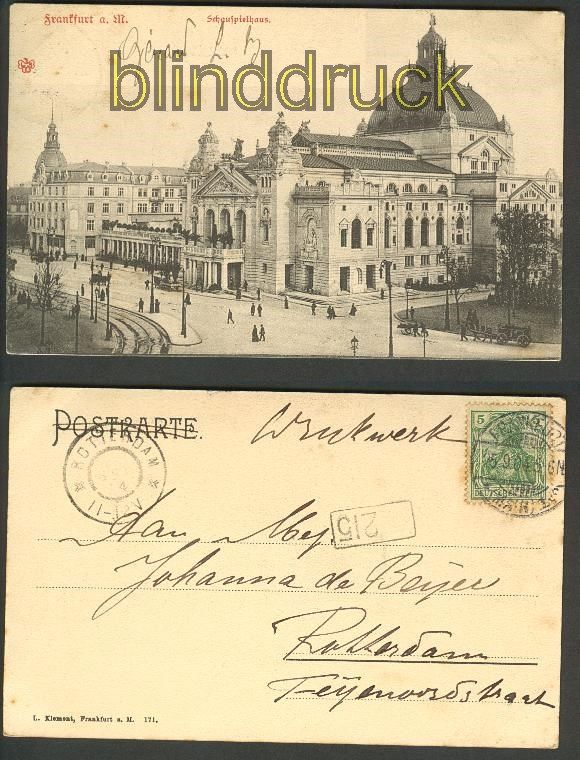 Frankfurt a. M.
Schauspielhaus.
blinddruck
POSTKARTE.
Drukwerk
5
ROTTERDAM
DEUTSCHES
215
Aan Mej.
Johanna de Beijer
Rotterdam
Feijenoordstraat
L. Klement, Frankfurt a. M. 171.